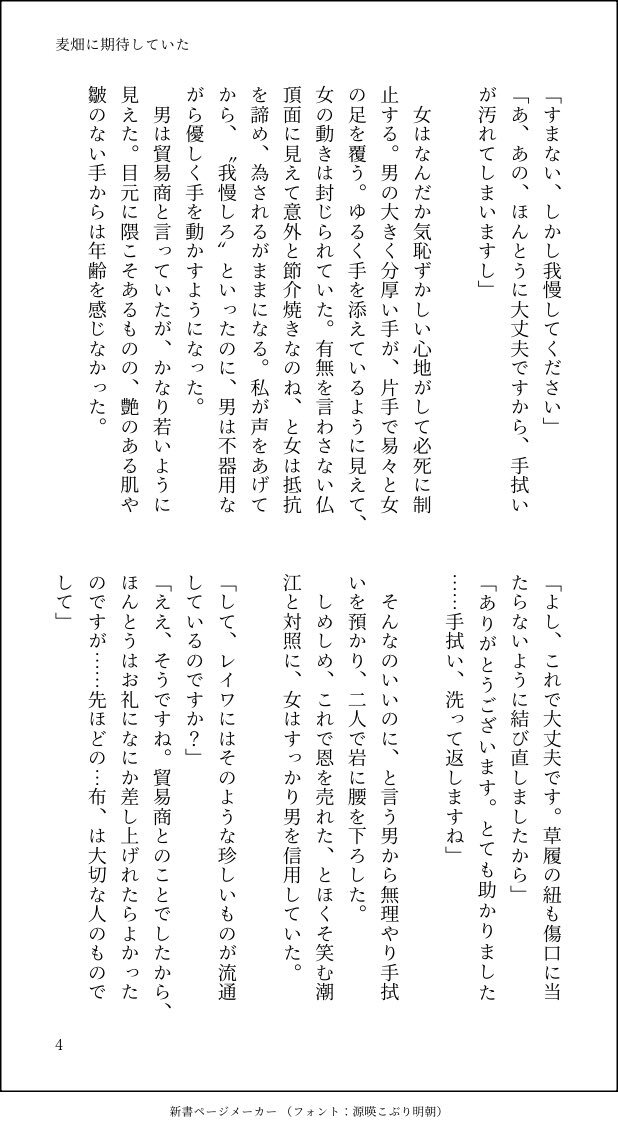 麦畑に期待していた
「すまない、しかし我慢してください」
「あ、あの、ほんとうに大丈夫ですから、手拭い
が汚れてしまいますし」
女はなんだか気恥ずかしい心地がして必死に制
止する。男の大きく分厚い手が、片手で易々と女
の足を覆う。ゆるく手を添えているように見えて、
女の動きは封じられていた。有無を言わさない仏
頂面に見えて意外と節介焼きなのね、と女は抵抗
を諦め、為されるがままになる。私が声をあげて
から、〝我慢しろ〟といったのに、男は不器用な
がら優しく手を動かすようになった。
男は貿易商と言っていたが、かなり若いように
見えた。目元に隈こそあるものの、艶のある肌や
皺のない手からは年齢を感じなかった。
「よし、これで大丈夫です。草履の紐も傷口に当
たらないように結び直しましたから」
「ありがとうございます。とても助かりました
……手拭い、洗って返しますね」
そんなのいいのに、と言う男から無理やり手拭
いを預かり、二人で岩に腰を下ろした。
しめしめ、これで恩を売れた、とほくそ笑む潮
江と対照に、女はすっかり男を信用していた。
「して、レイワにはそのような珍しいものが流通
しているのですか？」
「ええ、そうですね。貿易商とのことでしたから、
ほんとうはお礼になにか差し上げれたらよかった
のですが……先ほどの…布、は大切な人のもので
して」
4
新書ページメーカー（フォント：源暎こぶり明朝）